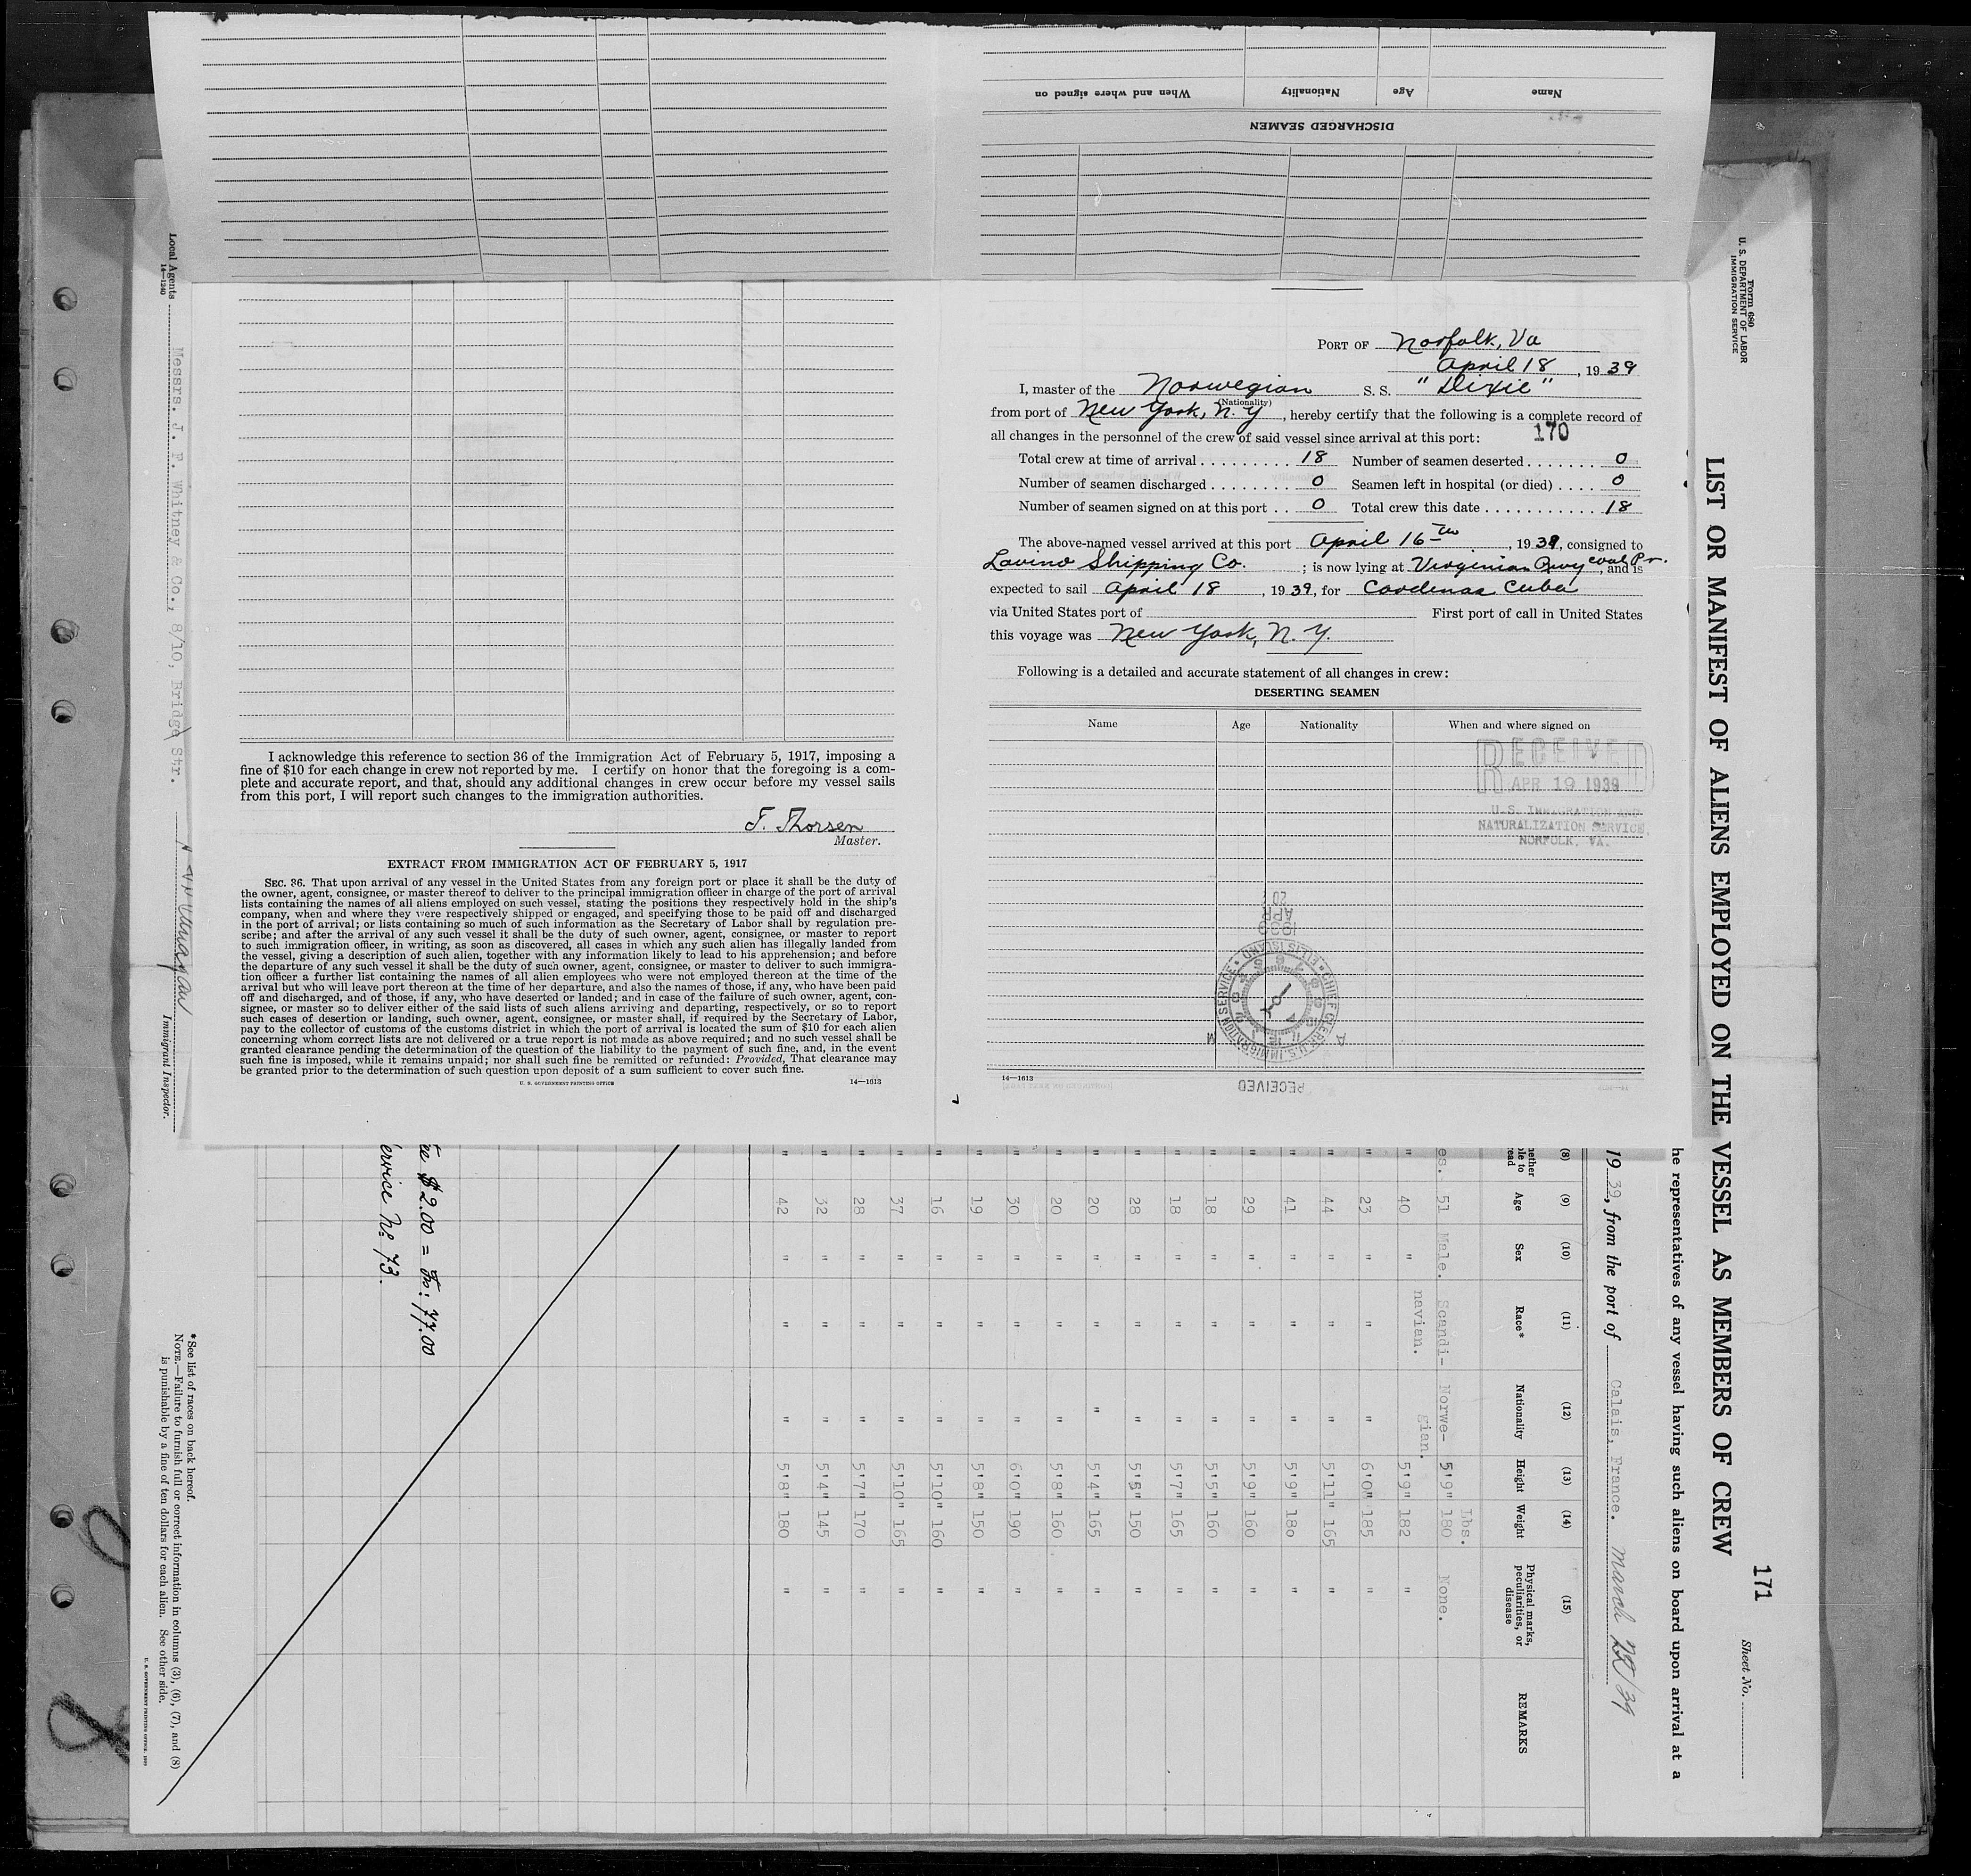 Name Age Nationality When and where signed on
DISCHARGED SEAMEN
PORT OF Norfolk, Va
April 18, 1939
I, master of the Norwegian S. S. "Dixie"
(Nationality)
from port of New York, N. Y, hereby certify that the following is a complete record of
all changes in the personnel of the crew of said vessel since arrival at this port:
170
Total crew at time of arrival . . . . . . . . . . 18 Number of seamen deserted . . . . . . . 0
Number of seamen discharged . . . . . . . . 0 Seamen left in hospital (or died) . . . . 0
Number of seamen signed on at this port . . 0 Total crew this date . . . . . . . . . . . . 18
The above-named vessel arrived at this port April 16th, 1939, consigned to
Lavino Shipping Co. ; is now lying at Virginian Rwy coal Pr., and is
expected to sail April 18, 1939, for Cardenas Cuba
via United States port of First port of call in United States
this voyage was New York, N. Y.
Following is a detailed and accurate statement of all changes in crew:
DESERTING SEAMEN
Name Age Nationality When and where signed on
RECEIVED
APR 19 1939
U.S. IMMIGRATION AND
NATURALIZATION SERVICE,
NORFOLK, VA.
RECEIVED
CHIEF CLERK U.S. IMMIGRATION SERVICE • ELLIS ISLAND
A M
1939
APR
20
14—1613
I acknowledge this reference to section 36 of the Immigration Act of February 5, 1917, imposing a
fine of $10 for each change in crew not reported by me. I certify on honor that the foregoing is a com-
plete and accurate report, and that, should any additional changes in crew occur before my vessel sails
from this port, I will report such changes to the immigration authorities.
T. Thorsen
Master.
EXTRACT FROM IMMIGRATION ACT OF FEBRUARY 5, 1917
SEC. 36. That upon arrival of any vessel in the United States from any foreign port or place it shall be the duty of
the owner, agent, consignee, or master thereof to deliver to the principal immigration officer in charge of the port of arrival
lists containing the names of all aliens employed on such vessel, stating the positions they respectively hold in the ship's
company, when and where they were respectively shipped or engaged, and specifying those to be paid off and discharged
in the port of arrival; or lists containing so much of such information as the Secretary of Labor shall by regulation pre-
scribe; and after the arrival of any such vessel it shall be the duty of such owner, agent, consignee, or master to report
to such immigration officer, in writing, as soon as discovered, all cases in which any such alien has illegally landed from
the vessel, giving a description of such alien, together with any information likely to lead to his apprehension; and before
the departure of any such vessel it shall be the duty of such owner, agent, consignee, or master to deliver to such immigra-
tion officer a further list containing the names of all alien employees who were not employed thereon at the time of the
arrival but who will leave port thereon at the time of her departure, and also the names of those, if any, who have been paid
off and discharged, and of those, if any, who have deserted or landed; and in case of the failure of such owner, agent, con-
signee, or master so to deliver either of the said lists of such aliens arriving and departing, respectively, or so to report
such cases of desertion or landing, such owner, agent, consignee, or master shall, if required by the Secretary of Labor,
pay to the collector of customs of the customs district in which the port of arrival is located the sum of $10 for each alien
concerning whom correct lists are not delivered or a true report is not made as above required; and no such vessel shall be
granted clearance pending the determination of the question of the liability to the payment of such fine, and, in the event
such fine is imposed, while it remains unpaid; nor shall such fine be remitted or refunded: Provided, That clearance may
be granted prior to the determination of such question upon deposit of a sum sufficient to cover such fine.
U. S. GOVERNMENT PRINTING OFFICE 14—1613
Form 680
U. S. DEPARTMENT OF LABOR
IMMIGRATION SERVICE
171
Sheet No.
LIST OR MANIFEST OF ALIENS EMPLOYED ON THE VESSEL AS MEMBERS OF CREW
he representatives of any vessel having such aliens on board upon arrival at a
19 39, from the port of Calais, France. March 22/39
(8) (9) (10) (11) (12) (13) (14) (15)
Age Sex Race* Nationality Height Weight Physical marks, peculiarities, or disease REMARKS
Lbs.
es. 51 Male. Scandi- Norwe- 5'9" 180 None.
navian. gian.
" 40 " 5'9" 182 "
" 23 " " " 6'0" 185 "
" 44 " " " 5'11" 165 "
" 41 " " " 5'9" 180 "
" 29 " " " 5'9" 160 "
" 18 " " " 5'5" 160 "
" 18 " " " 5'7" 165 "
" 28 " " " 5'6" 150 "
" 20 " " " 5'4" 165 "
" 20 " " " 5'8" 160 "
" 30 " " " 6'0" 190 "
" 19 " " " 5'8" 150 "
" 16 " " " 5'10" 160 "
" 37 " " " 5'10" 165 "
" 28 " " " 5'7" 170 "
" 32 " " " 5'4" 145 "
" 42 " " " 5'8" 180 "
ee $ 2.00 = Frs: 77.00
ervice No 73.
*See list of races on back hereof.
NOTE.—Failure to furnish full or correct information in columns (3), (6), (7), and (8)
is punishable by a fine of ten dollars for each alien. See other side.
U. S. GOVERNMENT PRINTING OFFICE
Local Agents Messrs. J. F. Whitney & Co., 8/10, Bridge Str.
14—1240
Immigrant Inspector.